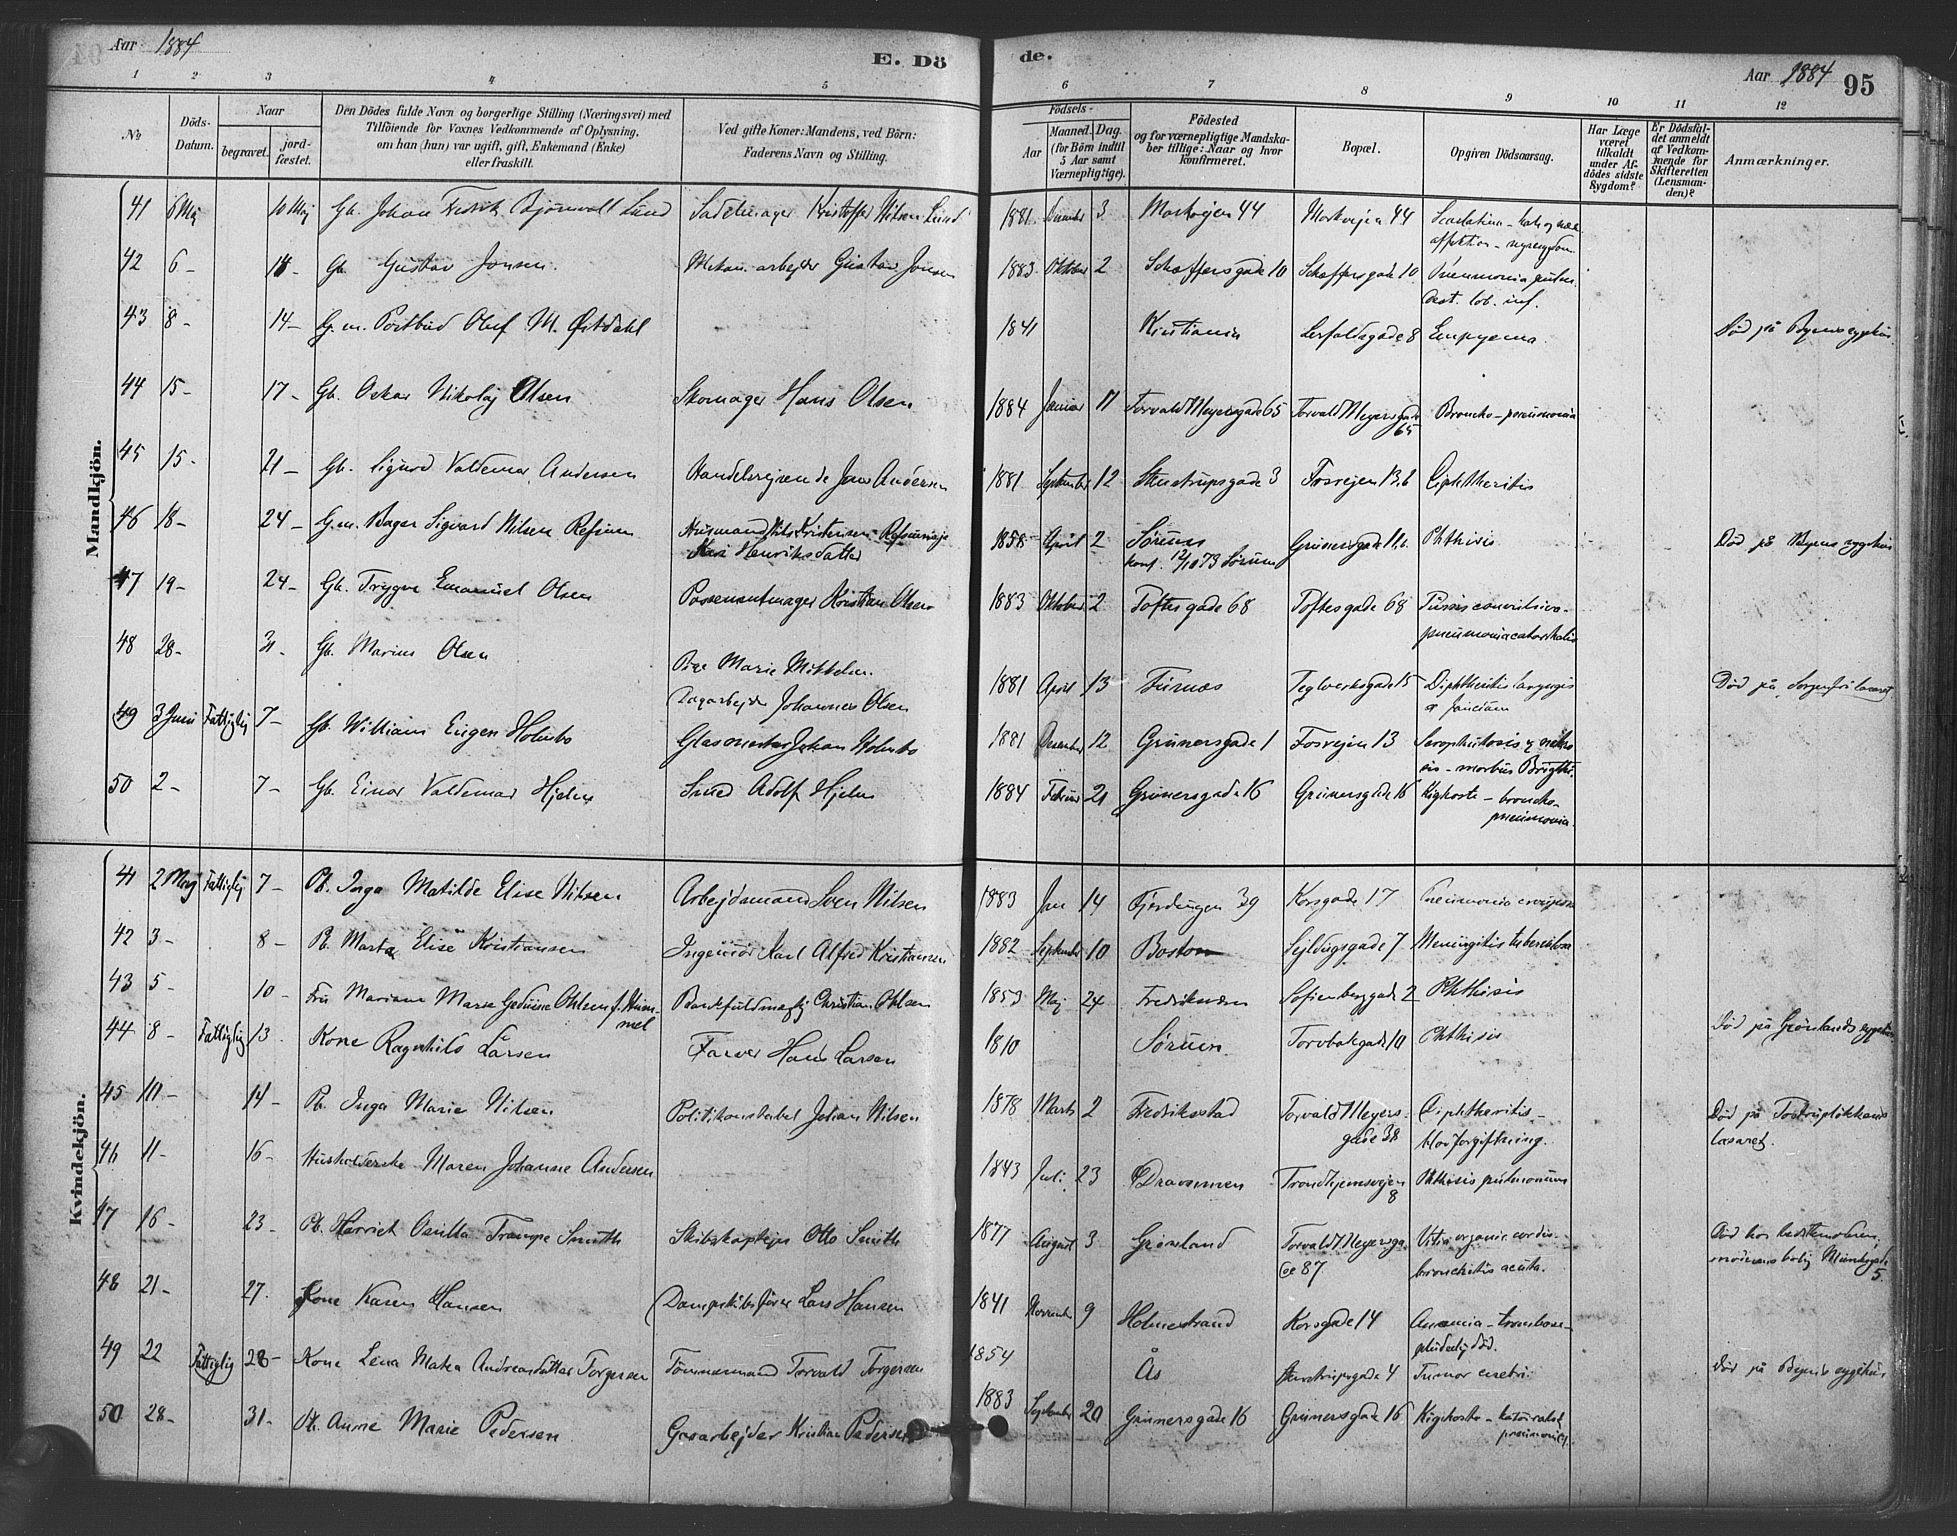 Aar 1884
E. Döde.
Aar 1884 95
1 2 3 4 5 6 7 8 9 10 11 12
No
Döds-Datum.
Naar
begravet.
jord-fæstet.
Den Dödes fulde Navn og borgerlige Stilling (Næringsvei) med
Tilföiende for Voxnes Vedkommende af Oplysning,
om han (hun) var ugift, gift, Enkemand (Enke)
eller fraskilt.
Ved gifte Koner: Mandens, ved Börn:
Faderens Navn og Stilling.
Födsels-
Aar
Maaned. Dag.
(for Börn indtil
5 Aar samt
Værnepligtige).
Födested
og for værnepligtige Mandska-
ber tillige: Naar og hvor
konfirmeret.
Bopæl.
Opgiven Dödsaarsag.
Har Læge
været
tilkaldt
under Af-
dödes sidste
Sygdom?
Er Dödsfal-
det anmeldt
af Vedkom-
mende for
Skifteretten
(Lensman-
den)?
Anmærkninger.
Mandkjön.
41 6 Maj 10 Maj Gb. Johan Fredrik Bjørnvall Lund Sadelmager Kristoffer Nilsen Lund 1881 December 3 Markvejen 44 Markvejen 44 Scarlatina
42 6 - 14 Gb. Gustav Jonsen. Mekan. arbejder Gustav Jonsen 1883 Oktober 2 Schæffersgade 10 Schæffersgade 10 Pneumonia
43 8 - 14 - G.m. Postbud Oluf M. Østdahl 1841 Kristiania Lerfaldsgade 8 Empyema. Död på Byens sygehus
44 15 - 17 - Gb. Oskar Nikolaj Olsen Skomager Hans Olsen 1884 Januar 17 Torvald Meyersgade 65 Torvald Meyersgade 65 Broncho-pneumonia
45 15 - 21 - Gb. Sigurd Valdemar Andersen Handelsrejsende Jens Andersen 1881 September 12 Stenstrupsgade 3 Fosvejen 13.b Diphtheritis
46 18 - 24 - G.m. Bager Sigvard Nilsen Refsum Husmand Nils Kristensen Refsumeje
Kari Henriksdatter 1858 April 2 Sørum
konf. 12/10 73 Sørum Grünersgade 11.b. Phthisis Död på Byens sygehus
47 19 - 24 - Gb. Trygve Emanuel Olsen Possementmager Kristian Olsen 1883 Oktober 2 Toftesgade 68 Toftesgade 68 Tussis convulsiva-
pneumonia catarrhalis
48 28 - 31 - Gb. Marius Olsen Pige Marie Mikkelsen.
Dagarbejder Johannes Olsen 1881 April 13 Furnæs Teglverksgade 15 Diphtheritis laryngis
Död på Sorgenfri lasaret
49 3 Juni Fattiglig 7 - Gb. William Eugen Holmbo Glasmester Johan Holmbo 1881 December 12 Grünersgade 1 Fosvejen 13 Scrophulosis
- morbus Brigthi.
50 2 - 7 - Gb. Einar Valdemar Hjelm Smed Adolf Hjelm 1884 Februar 21 Grünersgade 16 Grünersgade 16 Kighoste - broncho-
pneumonia.
Kvindekjön.
41 2 Maj Fattiglig 7 - Pb. Inga Matilde Elise Nilsen Arbejdsmand Sven Nilsen 1883 Jan 14 Fjerdingen 39 Korsgade 17 Pneumonia crouposa
42 3 - 8 - Pb. Marta Elise Kristiansen Ingeniör Karl Alfred Kristiansen 1882 September 10 Boston Sejldugsgade 7 Meningitis tuberculosa
43 5 - 10 - Fru Mariane Marie Olsen f. Hummel Bankfuldmægtig Christian Ohlsen 1853 Maj 24 Fredriksværn Sofienberggade 2 Phthisis
44 8 - Fattiglig 13. Kone Ragnhild Larsen Farver Hans Larsen 1810 Sørum. Torvbakgade 10 Phthisis Död på Grönlands sygehus
45 10 - 14 - Pb. Inga Marie Nilsen Politikonstabel Johan Nilsen 1878 Marts 2 Fredriksstad Torvald Meyers-
gade 38 Diphtheritis -
blodforgiftning. Död på Tostrupløkkens
lasaret.
46 11 - 16 - Husholderske Maren Johanne Andersen 1843 Juli 23 Drammen Trondhjemsvejen 8 Phthisis pulmonum
47 16 - 23 - Pb. Harriet Camilla Trampe Smith Skibskaptejn Otto Smith 1877 August 3 Grønland Torvald Meyersga
de 87 Vitia organic. cordis -
bronchitis acuta. Död hos bedstemoderen.
moderens bolig Munkegade 5.
48 21 - 27. Kone Karen Hansen Dampskibsförer Lars Hansen 1841 November 9 Holmestrand Korsgade 14 Anæmia - trombose -
pludselig död.
49 22 Fattiglig 28 - Kone Lena Matea Andreasdatter Torgersen Tömmermand Torvald Torgersen 1854 Ås Stenstrupsgade 4 Tumor cerebri Död på Byens sygehus
50 28 - 31 - Pb. Anne Marie Pedersen Gasarbejder Kristian Pedersen 1883 September 20 Grünersgade 16 Grünersgade 16 Kighoste - katarralsk
pneumoni.